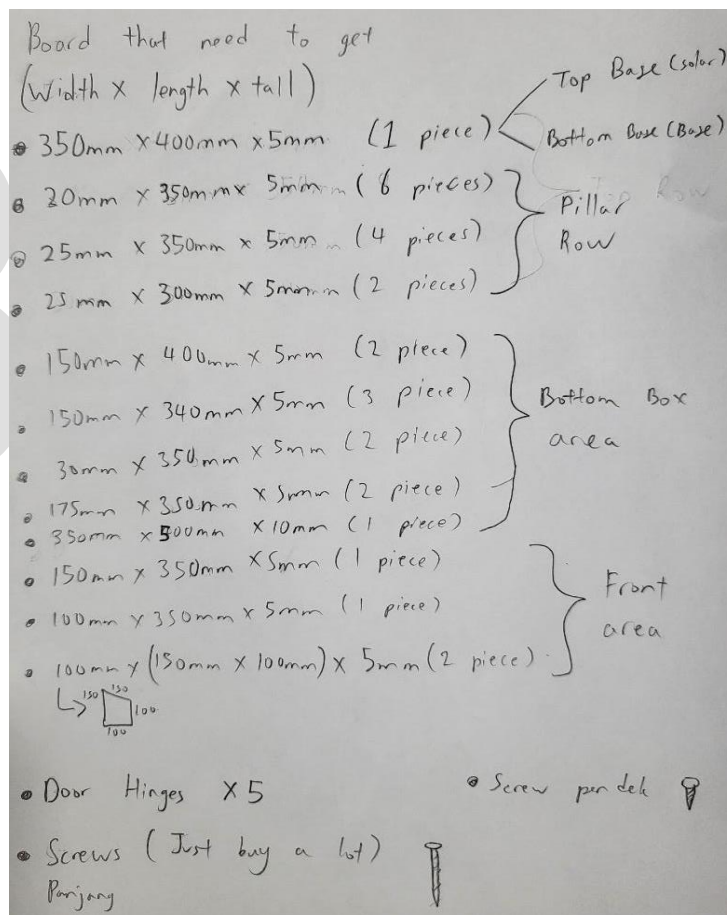 Board that need to get
(Width x length x tall)
• 350mm x 400mm x 5mm (1 piece) Top Base (solar)
Bottom Base (Base)
• 20mm x 350mm x 5mm (6 pieces)
• 25mm x 350mm x 5mm (4 pieces)
• 25mm x 300mm x 5mm (2 pieces)
Pillar
Row
• 150mm x 400mm x 5mm (2 piece)
• 150mm x 340mm x 5mm (3 piece)
• 30mm x 350mm x 5mm (2 piece)
• 175mm x 350mm x 5mm (2 piece)
• 350mm x 500mm x 10mm (1 piece)
Bottom Box
area
• 150mm x 350mm x 5mm (1 piece)
• 100mm x 350mm x 5mm (1 piece)
• 100mm x (150mm x 100mm) x 5mm (2 piece)
Front
area
150 150
100
100
• Door Hinges x5
• Screw pendek
• Screws (Just buy a lot)
Panjang